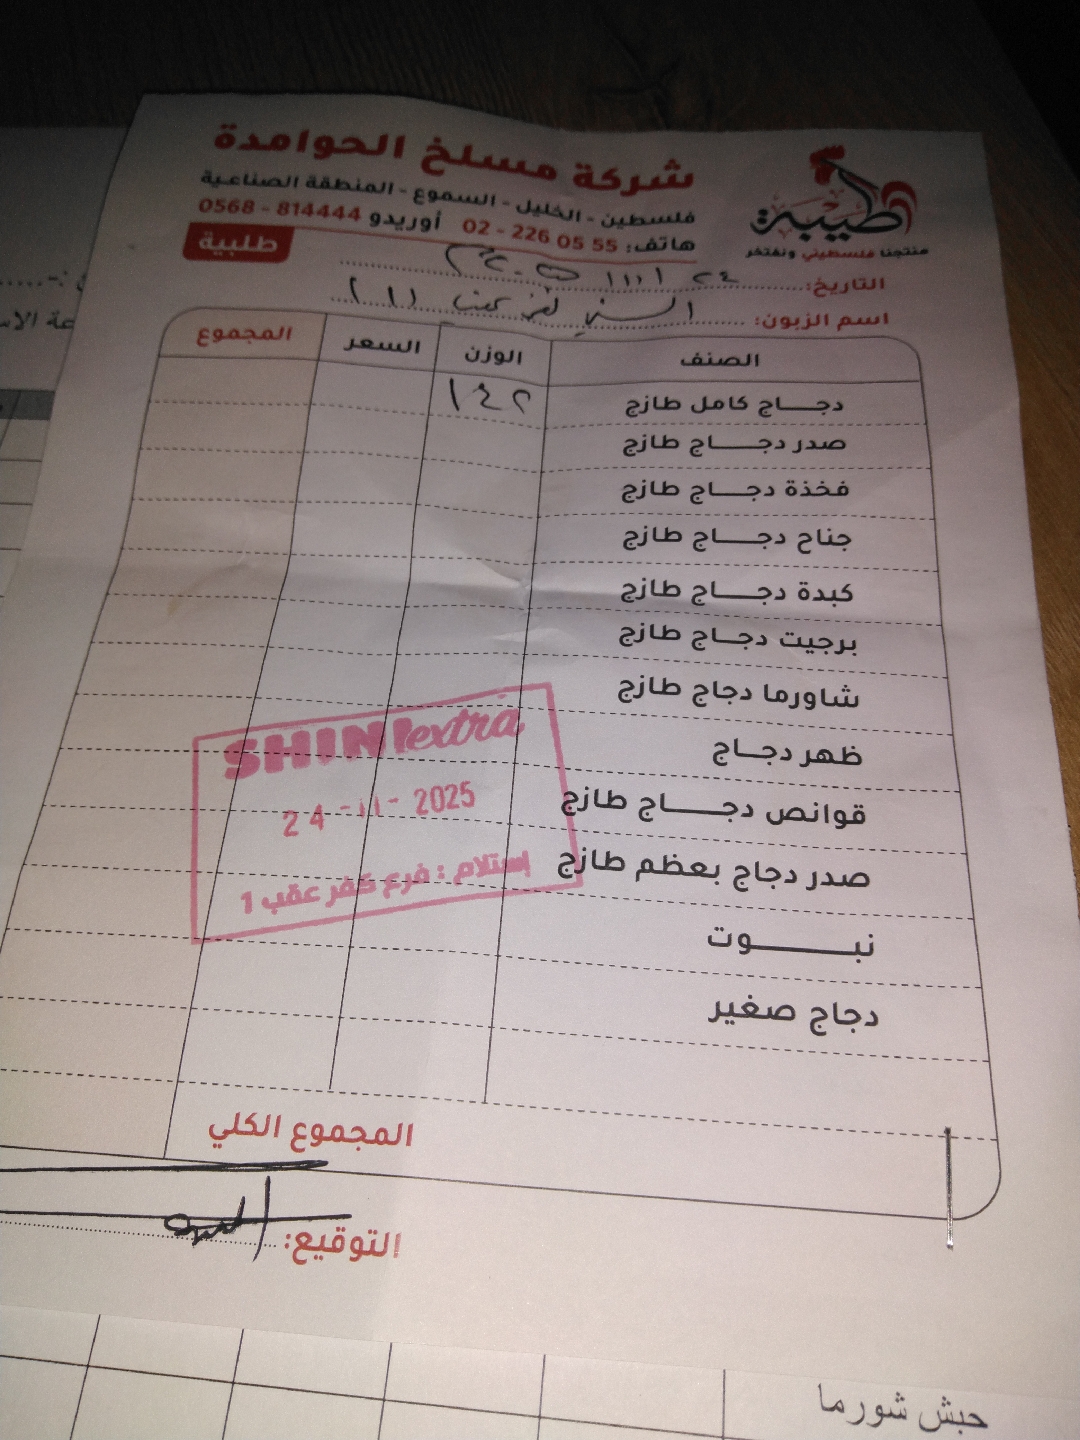 شركة مسلخ الحوامدة
فلسطين - الخليل - السموع - المنطقة الصناعية
هاتف: 55 05 226 - 02 أوريدو 814444 - 0568
طيبة
منتجنا فلسطيني ونفتخر
طلبية
التاريخ: ٢٤ / ١١ / ٢٠٢٥
اسم الزبون: الشني كفر عقب (١)
الصنف الوزن السعر المجموع
دجاج كامل طازج ١٤٢
صدر دجاج طازج
فخذة دجاج طازج
جناح دجاج طازج
كبدة دجاج طازج
برجيت دجاج طازج
شاورما دجاج طازج
ظهر دجاج
قوانص دجاج طازج
صدر دجاج بعظم طازج
نبوت
دجاج صغير
SHINI extra
24 -11- 2025
إستلام : فرع كفر عقب 1
المجموع الكلي
التوقيع:
حبش شورما